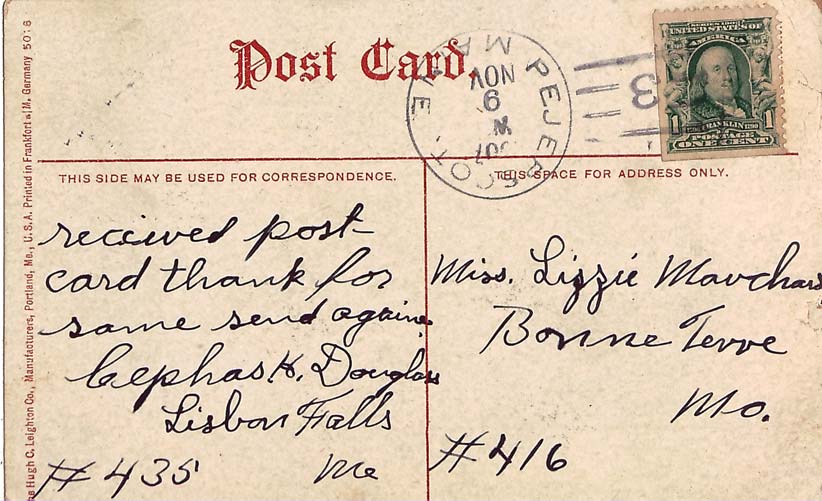 Post Card.
PEJEPSCOT MAINE
NOV
9
M
1907
3
SERIES 1902
UNITED STATES OF
AMERICA
FRANKLIN
1 POSTAGE 1
ONE CENT
THIS SIDE MAY BE USED FOR CORRESPONDENCE.
received post-
card thank for
same send again.
Cephas K. Douglass
Lisbon Falls
Me
#435
THIS SPACE FOR ADDRESS ONLY.
Miss. Lizzie
Bonne Terre
Mo.
#416
Hugh C. Leighton Co., Manufacturers, Portland, Me., U.S.A. Printed in Frankfort a/M. Germany 5018